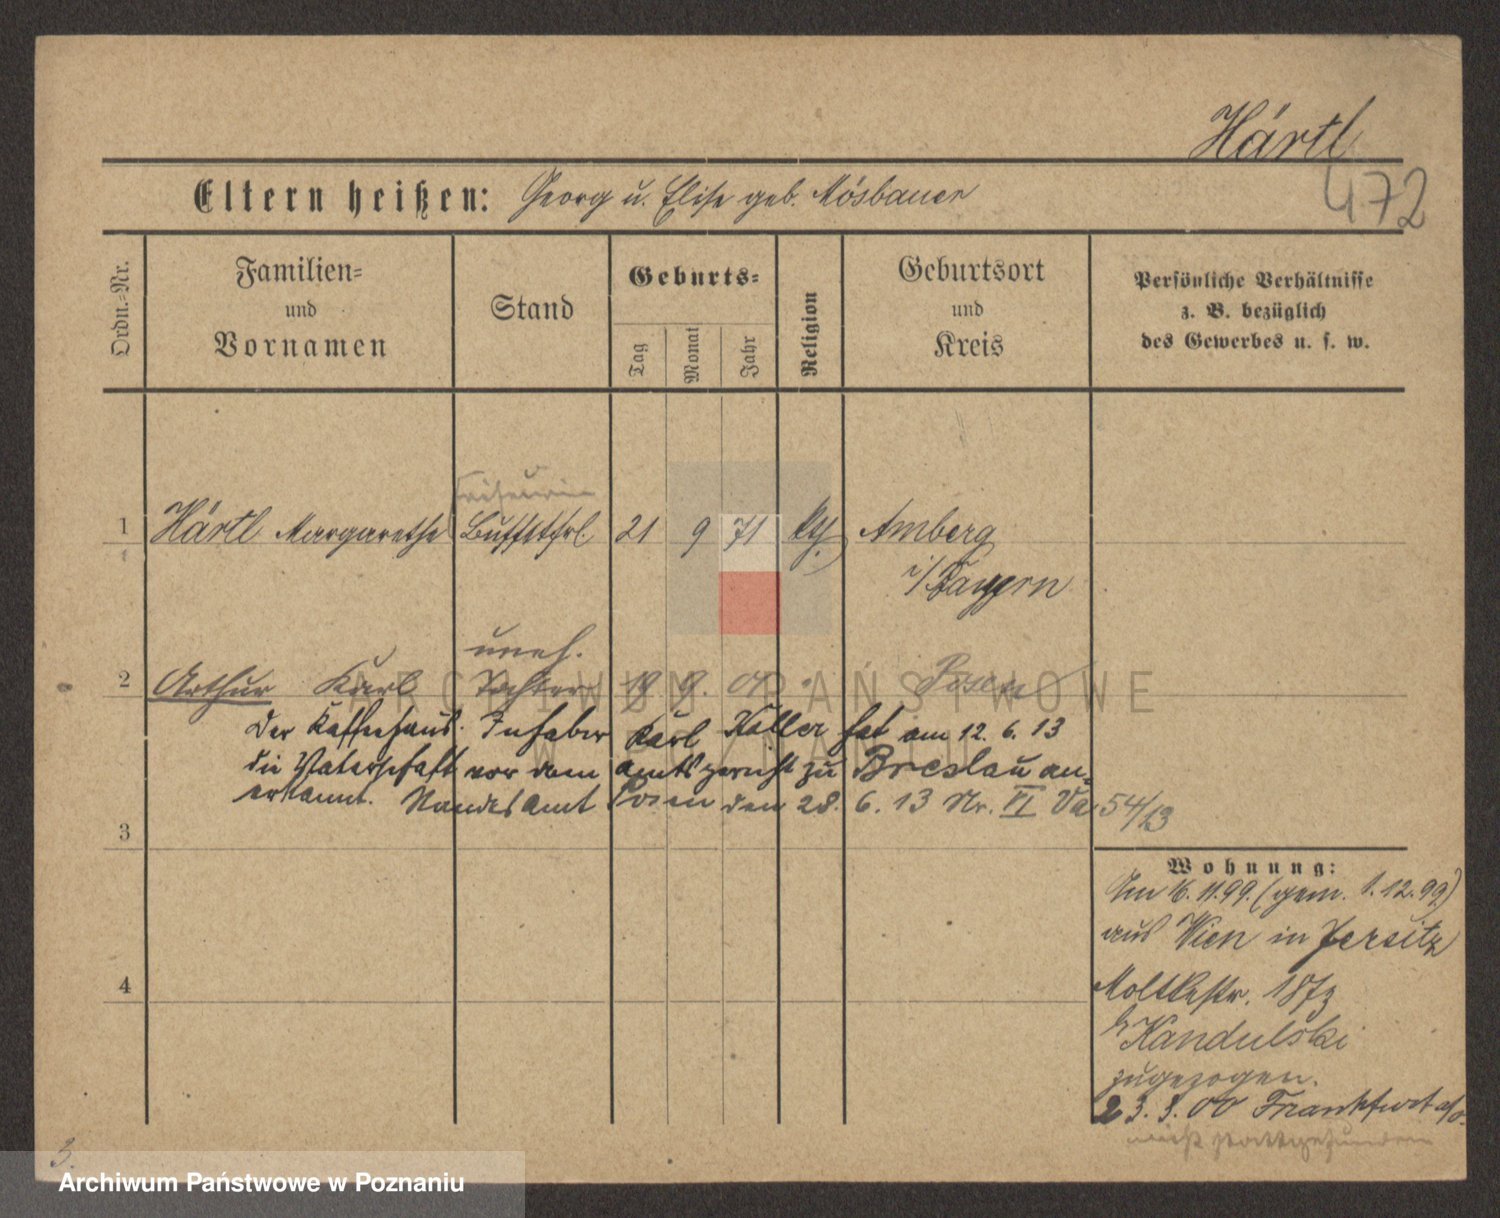 Härtl
472
Eltern heißen: Georg u. Elise geb. Mösbauer
Ordn.-Nr.
Familien-
und
Vornamen
Stand
Geburts-
Tag
Monat
Jahr
Religion
Geburtsort
und
Kreis
Persönliche Verhältnisse
z. B. bezüglich
des Gewerbes u. s. w.
Friseurin
1 Härtl Margarethe Buffetfrl. 21 9 71 Amberg
i/Bayern
uneh.
2 Arthur Karl 9. Posen
ARCHIWUM PAŃSTWOWE
W POZNANIU
Der Kaffeehaus. Inhaber Karl Koller hat am 12. 6. 13
die Vaterschaft vor dem Amtsgericht zu Breslau an-
erkannt. Standesamt Posen den 28. 6. 13 Nr. VI Va 54/13
3
Wohnung:
Am 16. 11. 99. (gem. 1. 12. 99)
aus Wien in Jersitz
Moltkestr.
b/ Kandulski
zugezogen.
4
23. 3. 00 Frankfurt a/O.
nicht stattgefunden
3.
Archiwum Państwowe w Poznaniu